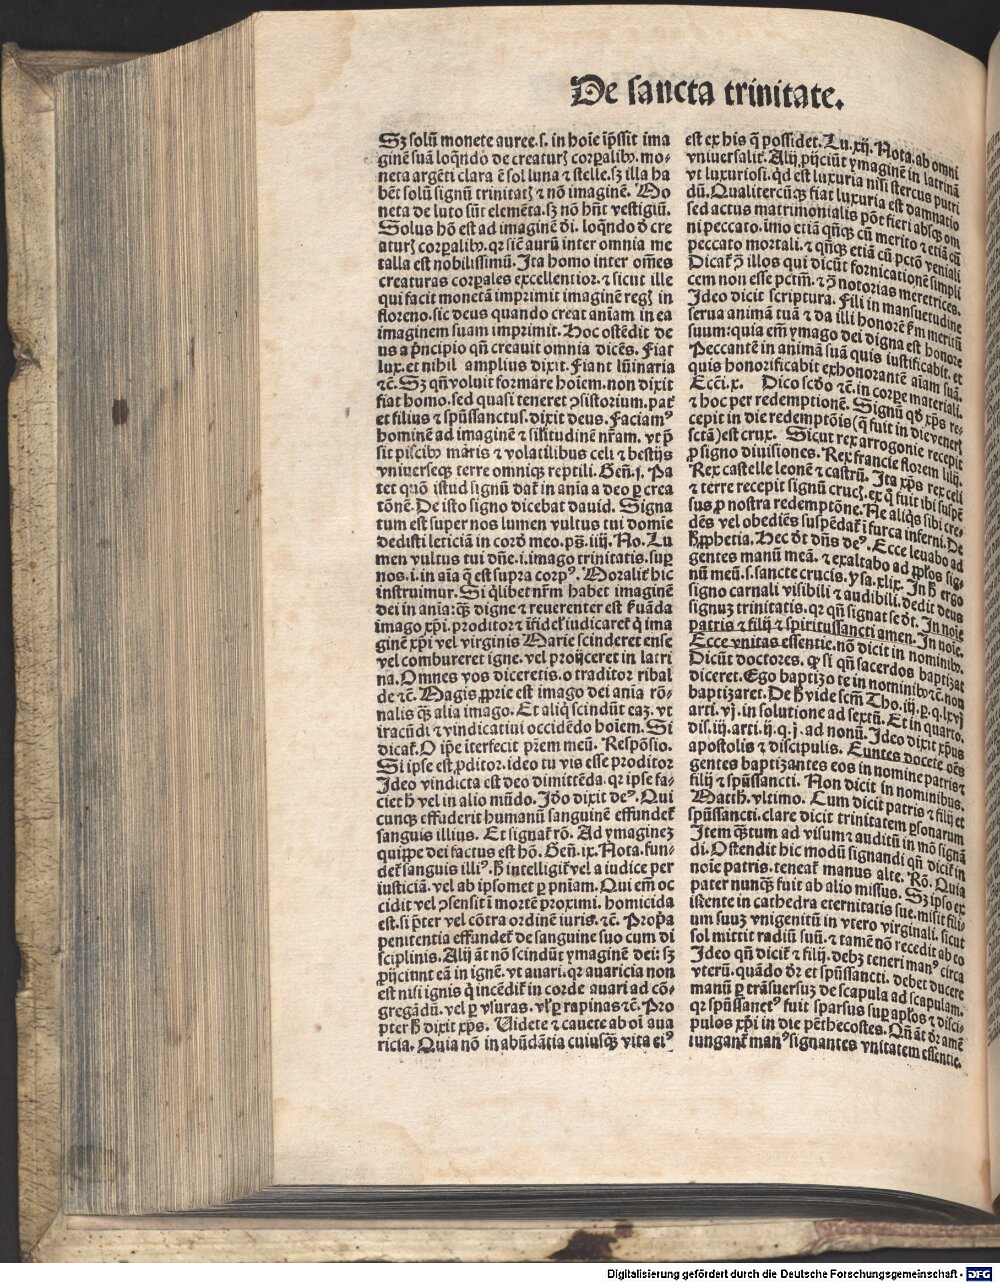 De sancta trinitate.
Sꝫ solū monete auree.s. in hoīe īp̄ssit ima
ginē suā loq̄ndo de creaturꝭ corꝑalibꝰ. mo-
neta argēti clara ē sol luna ⁊ stelle.sꝫ illa ha
bēt solū signū trinitatꝭ ⁊ nō imaginē. Mo
neta de luto sūt elemēta.sꝫ nō hn̄t vestigiū.
Solus hō est ad imaginē d̄i. loq̄ndo d̄ cre
aturꝭ corꝑalibꝰ. qꝛ sic̄ aurū inter omnia me
talla est nobilissimū. Ita homo inter om̄es
creaturas corꝑales excellentior. ⁊ sicut ille
qui facit monetā imprimit imaginē regꝭ in
floreno. sic deus quando creat aniam in ea
imaginem suam imprimit. Hoc ostēdit de
us a p̄ncipio qn̄ creauit omnia dicēs. Fiat
lux. et nihil amplius dixit. Fiant lūinaria
⁊c̄. Sꝫ qn̄ voluit formare hoīem. non dixit
fiat homo. sed quasi teneret ↄsistorium. pat̄
et filius ⁊ spūssanctus. dixit deus. Faciamꝰ
hominē ad imaginē ⁊ silitudinē nr̄am. vt p̄
sit piscibꝰ maris ⁊ volatilibus celi ⁊ bestijs
vniuerseqꝫ terre omniqꝫ reptili. Gen̄. j. Pa
tet quō istud signū dat̄ in anīa a deo ꝑ crea
tōnē. De isto signo dicebat dauid. Signa
tum est super nos lumen vultus tui domīe
dedisti leticiā in cord̄ meo. ps̄. iiij. No. Lu
men vultus tui dn̄e. i. imago trinitatis. suꝑ
nos. i. in aīa q̄ est supra corpꝰ. Moralit̄ hic
instruimur. Si q̄libet nr̄m habet imaginē
dei in anīa: qꝫ digne ⁊ reuerenter est ẜuāda
imago xp̄i. proditor ⁊ īfidel̄ iudicaret̄ q̄ ima
ginē xp̄i vel virginis Marie scinderet ense
vel combureret igne. vel proijceret in latri
na. Omnes vos diceretis. o traditor ribal
de ⁊c̄. Magis ꝓprie est imago dei anīa rō-
nalis qꝫ̄ alia imago. Et aliq̄ scindūt eaꝫ. vt
iracūdi ⁊ vindicatiui occidēdo hoīem. Si
dicat̄. O ip̄e īterfecit pr̄em meū. Respōsio.
Si ipse est ꝓditor. ideo tu vis esse proditor
Ideo vindicta est deo dimittēda. qꝛ ipse fa-
ciet h̄ vel in alio mūdo. Id̄o dixit deꝰ. Qui
cunqꝫ effuderit humanū sanguinē effundet̄
sanguis illius. Et signat̄ rō. Ad ymagineꝫ
quippe dei factus est hō. Gen̄. ix. Nota. fun-
det̄ sanguis illiꝰ. h̄ intelligit̄ vel a iudice per
iusticiā. vel ab ipsomet ꝑ pn̄iam. Qui em̄ oc
cidit vel ↄsensit ī mortē proximi. homicida
est. si p̄ter vel cōtra ordinē iuris. ⁊c̄. Prop̄a
penitentia effundet̄ de sanguine suo cum di
sciplinis. Alij āt nō scindūt ymaginē dei: sꝫ
ꝓijcinnt eā in ignē. vt auari. qꝛ auaricia non
est nisi ignis q̄ incēdit̄ in corde auari ad cō-
gregādū. vel ꝑ vsuras. vl̄ ꝑ rapinas ⁊c̄. Pro
pter h̄ dixit xp̄s. Videte ⁊ cauete ab oī aua
ricia. Quia nō in abūdātia cuiusqꝫ vita eiꝰ
est ex his q̄ possidet. Lu. xij. Nota. ab omni
vniuersalit̄. Alij ꝓijciūt ymaginē in latrinā
vt luxuriosi. qd̄ est luxuria nisi stercus putri
dū. Qualitercūqꝫ fiat luxuria est damnatio
sed actus matrimonialis pōt fieri absqꝫ om
ni peccato. imo etiā qn̄qꝫ cū merito ⁊ etiā cū
peccato mortali. ⁊ qn̄qꝫ etiā cū pctō veniali
Dicat̄ ꝯ̄ illos qui dicūt fornicationē simpli
cem non esse pctm̄. ⁊ ꝯ̄ notorias meretrices.
Ideo dicit scriptura. Fili in mansuetudine
serua animā tuā ⁊ da illi honorē ẜm meritū
suum: quia em̄ ymago dei digna est honore
Peccantē in animā suā quis iustificabit. et
quis honorificabit exhonorantē aīam suā.
Ecc̄i. x. Dico scd̄o ⁊c̄. in corꝑe materiali.
⁊ hoc per redemptionē. Signū qd̄ xp̄s re-
cepit in die redemptōis (q̄ fuit in die venerꝭ
sctā) est crux. Sicut rex arrogonie recepit
ꝓ signo diuisiones. Rex francie florem lilij.
Rex castelle leonē ⁊ castrū. Ita xp̄s rex celi
⁊ terre recepit signū crucꝭ. ex q̄ fuit ibi suspē
sus ꝓ nostra redemptōne. Ne aliq̄s sibi cre-
dēs vel obediēs suspēdat̄ ī furca inferni. De
h̄ ꝓphetia. Hec dt̄ dn̄s deꝰ. Ecce leuabo ad
gentes manū meā. ⁊ exaltabo ad pp̄los sig-
nū meū. s. sancte crucis. ysa. xlix. In h̄ ergo
signo carnali visibili ⁊ audibili. dedit deus
signuꝫ trinitatis. qꝛ qn̄ signat se dt̄. In noīe
patris ⁊ filij ⁊ spiritussancti amen. In noīe.
Ecce vnitas essentie. nō dicit in nominibꝰ.
Dicūt doctores. ꝙ si qn̄ sacerdos baptizat
diceret. Ego baptizo te in nominibꝰ ⁊c̄. non
baptizaret. De h̄ vide scm̄ Tho. iij. ꝑ. q. lxvj
arti. vj. in solutione ad sextū. Et in quarto.
dis. iij. arti. ij. q. j. ad nonū. Ideo dixit xp̄us
apostolis ⁊ discipulis. Euntes docete oēs
gentes baptizantes eos in nomine patris ⁊
filij ⁊ spūssancti. Non dicit in nominibus.
Matth. vltimo. Cum dicit patris ⁊ filij et
spūssancti. clare dicit trinitatem ꝑsonarum
Item qꝫ̄tum ad visum ⁊ auditū in mō signā
di. Ostendit hic modū signandi qn̄ dicit̄ in
noīe patris. teneat̄ manus alte. Rō. Quia
pater nunqꝫ̄ fuit ab alio missus. Sꝫ ipso ex
istente in cathedra eternitatis sue. misit fili-
um suuꝫ vnigenitū in vtero virginali. sicut
sol mittit radiū suū. ⁊ tamē nō recedit ab eo
Ideo qn̄ dicit̄ ⁊ filij. debꝫ teneri manꝰ circa
vterū. quādo dr̄ et spūssancti. debet ducere
manū ꝑ trāsuersuꝫ de scapula ad scapulam.
qꝛ spūssanctꝰ fuit sparsus suꝑ apl̄os ⁊ disci-
pulos xp̄i in die pēthecostes. Qn̄ āt dr̄ amē
iungant̄ manꝰ signantes vnitatem essentie.
Digitalisierung gefördert durch die Deutsche Forschungsgemeinschaft - DFG